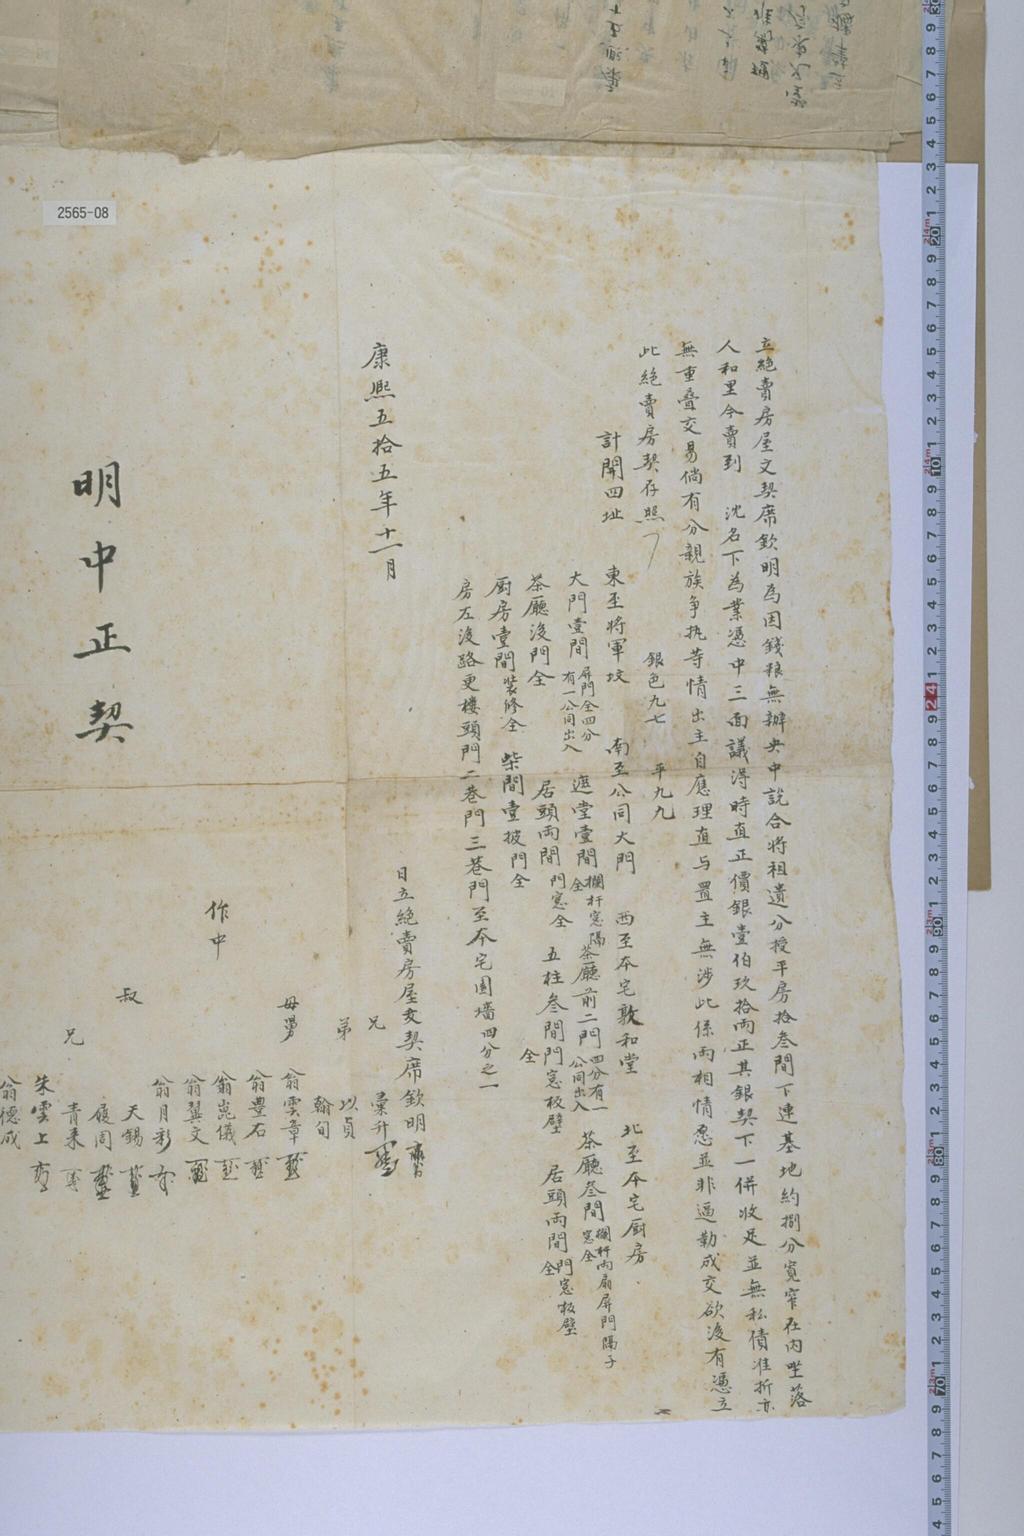 2565-08
立絶賣房屋文契席欽明為因錢粮無辦央中説合將祖遺分授平房拾叁間下連基地約捌分寬窄在内坐落
人和里今賣到　沈名下為業憑中三面議淂時直正價銀壹伯玖拾兩正其銀契下一併收足並無私債准折亦
無重叠交易倘有分親族争执等情出主自應理直与置主無涉此係兩相情愿並非逼勒成交欲後有憑立
此絶賣房契存照　銀色九七　平九九
計開四址　東至將軍坟　南至公同大門　西至夲宅敦和堂　北至夲宅厨房
大門壹間　屏門全四分有一公同出入　遮堂壹間　欄杆窓隔全　茶廳前二門　四分有一公同出入　茶廳叁間　欄杆兩扇屏門隔子窓全
茶廳後門全　居頭兩間　門窓全　五柱叁間門窓板壁全　居頭兩間門窓板壁全
厨房壹間裝修全　柴間壹披門全
房左後路更樓頭門二巷門三巷門至夲宅園墻四分之一
康熙五拾五年十一月　日立絶賣房屋文契席欽明
兄　彙升
弟　以貞
翰旬
母舅　翁雲章
翁豊石
翁崑儀
翁翼文
作中　翁月彩
天錫
叔　履周
青来
兄　朱雲上
翁德成
明中正契